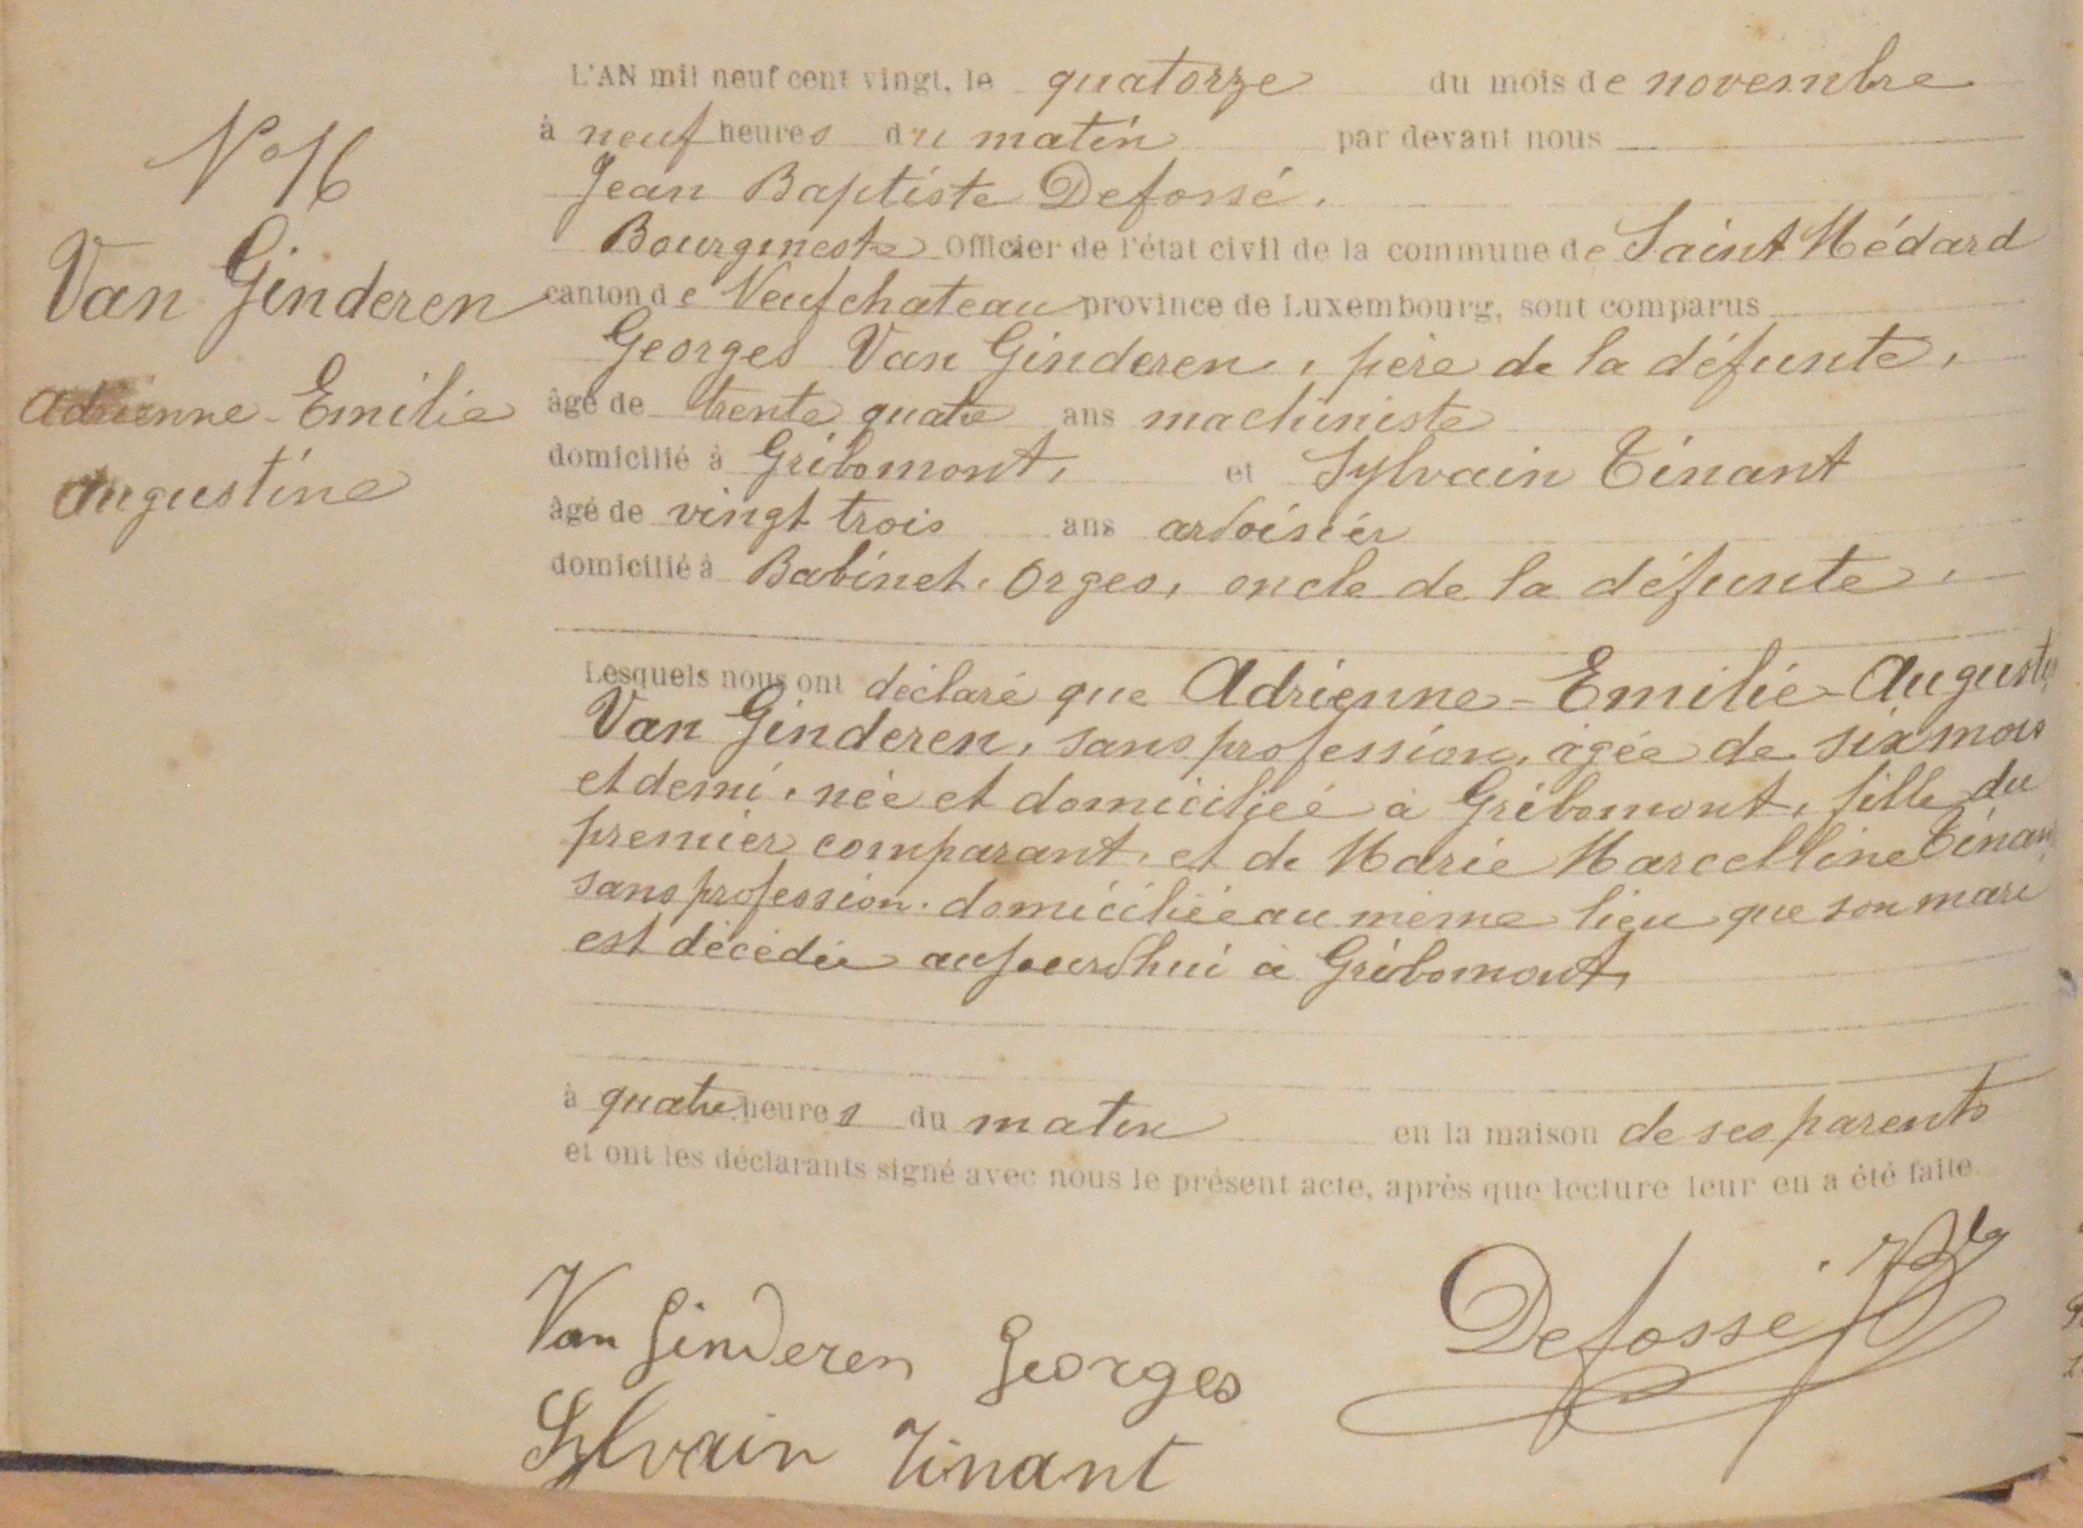 N° 16
Van Ginderen
Adrienne-Emilie
Augustine
L'AN mil neuf cent vingt, le quatorze du mois de novembre
à neuf heures du matin par devant nous
Jean Baptiste Defossé,
Bourgmestre Officier de l'état civil de la commune de Saint Médard
canton de Neufchateau province de Luxembourg, sont comparus
Georges Van Ginderen, père de la défunte,
âgé de trente quatre ans machiniste
domicilié à Gribomont, et Sylvain Tinant
âgé de vingt trois ans ardoisier
domicilié à Babinet, Orgeo, oncle de la défunte,
Lesquels nous ont déclaré que Adrienne-Emilie-August
Van Ginderen, sans profession, âgée de six mois
et demi, née et domiciliée à Gribomont, fille du
premier comparant, et de Marie Marcelline Tinan
sans profession, domiciliée au même lieu que son mari
est décédée aujourd'hui à Gribomont,
à quatre heures du matin en la maison de ses parents
et ont les déclarants signé avec nous le présent acte, après que lecture leur en a été faite.
Van Ginderen Georges
Defossé
Sylvain Tinant